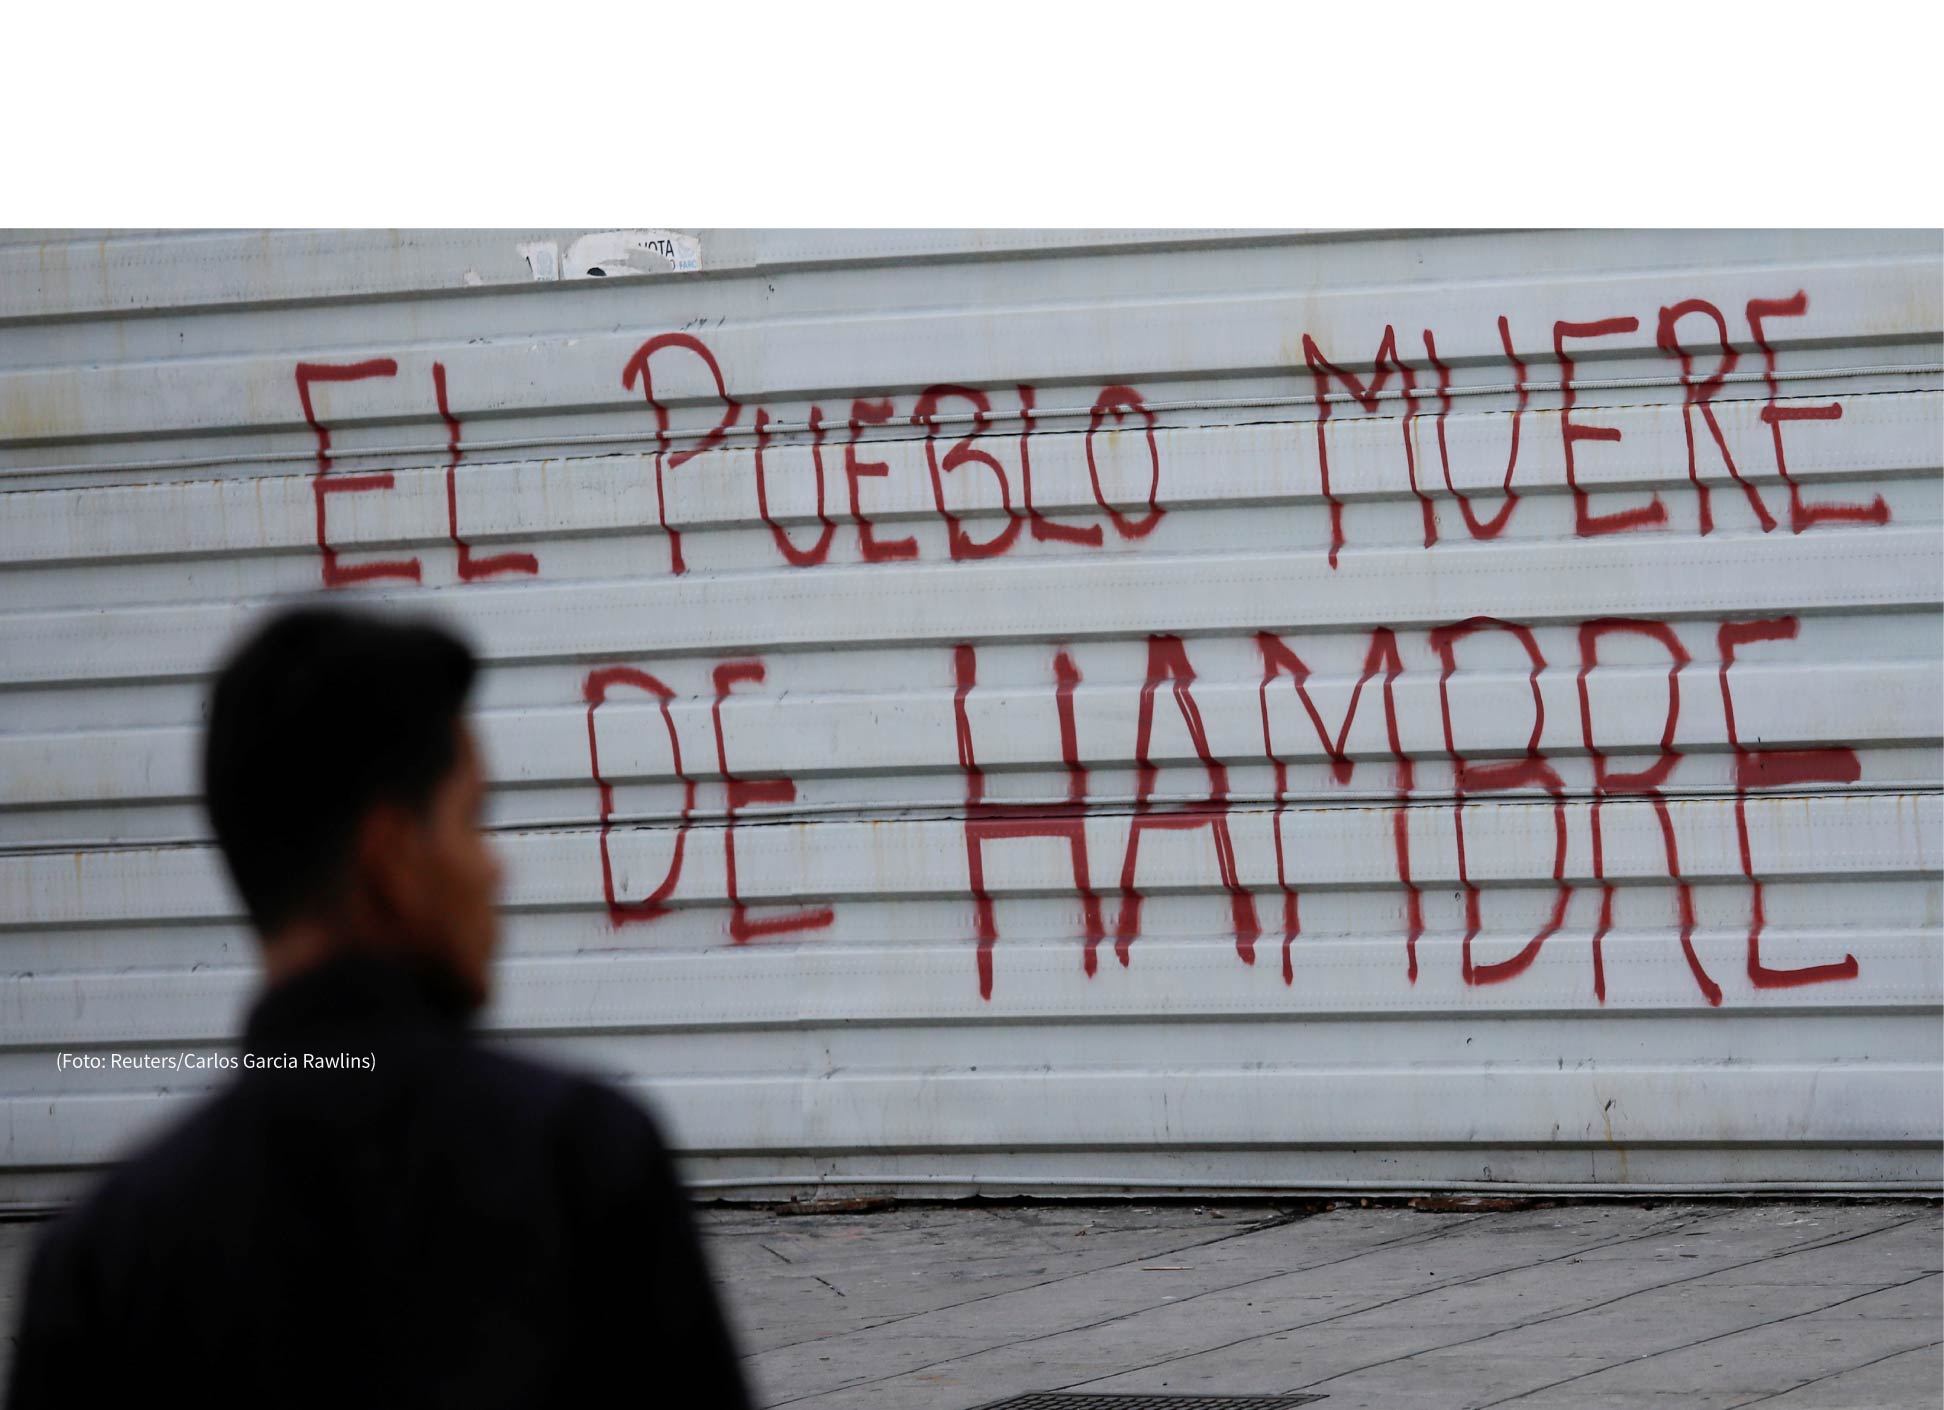 VOTA
FARC
EL PUEBLO MUERE
DE HAMBRE
(Foto: Reuters/Carlos Garcia Rawlins)